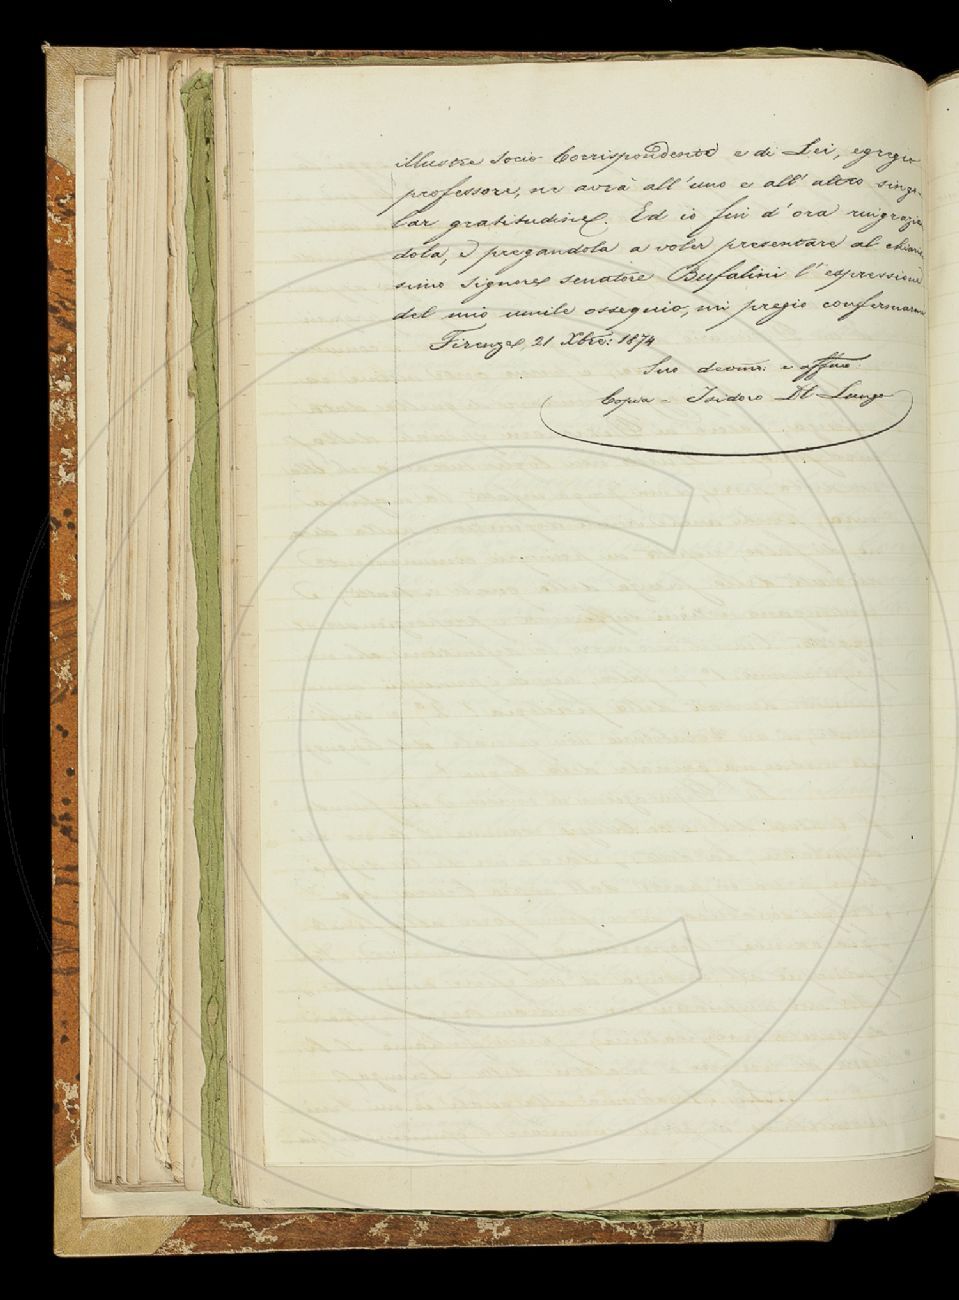 illustre Socio Corrispondente e di Lei, egregio
professore, ne avrà all'uno e all'altro singo-
lar gratitudine. Ed io fin d'ora ringrazian
dola, e pregandola a voler presentare al chiaris
simo Signore senatore Bufalini l'espressione
del mio umile ossequio, mi pregio confermarmi
Firenze, 21 Xbre: 1874
Suo devotmo: e affmo
Copia - Isidoro Del Lungo